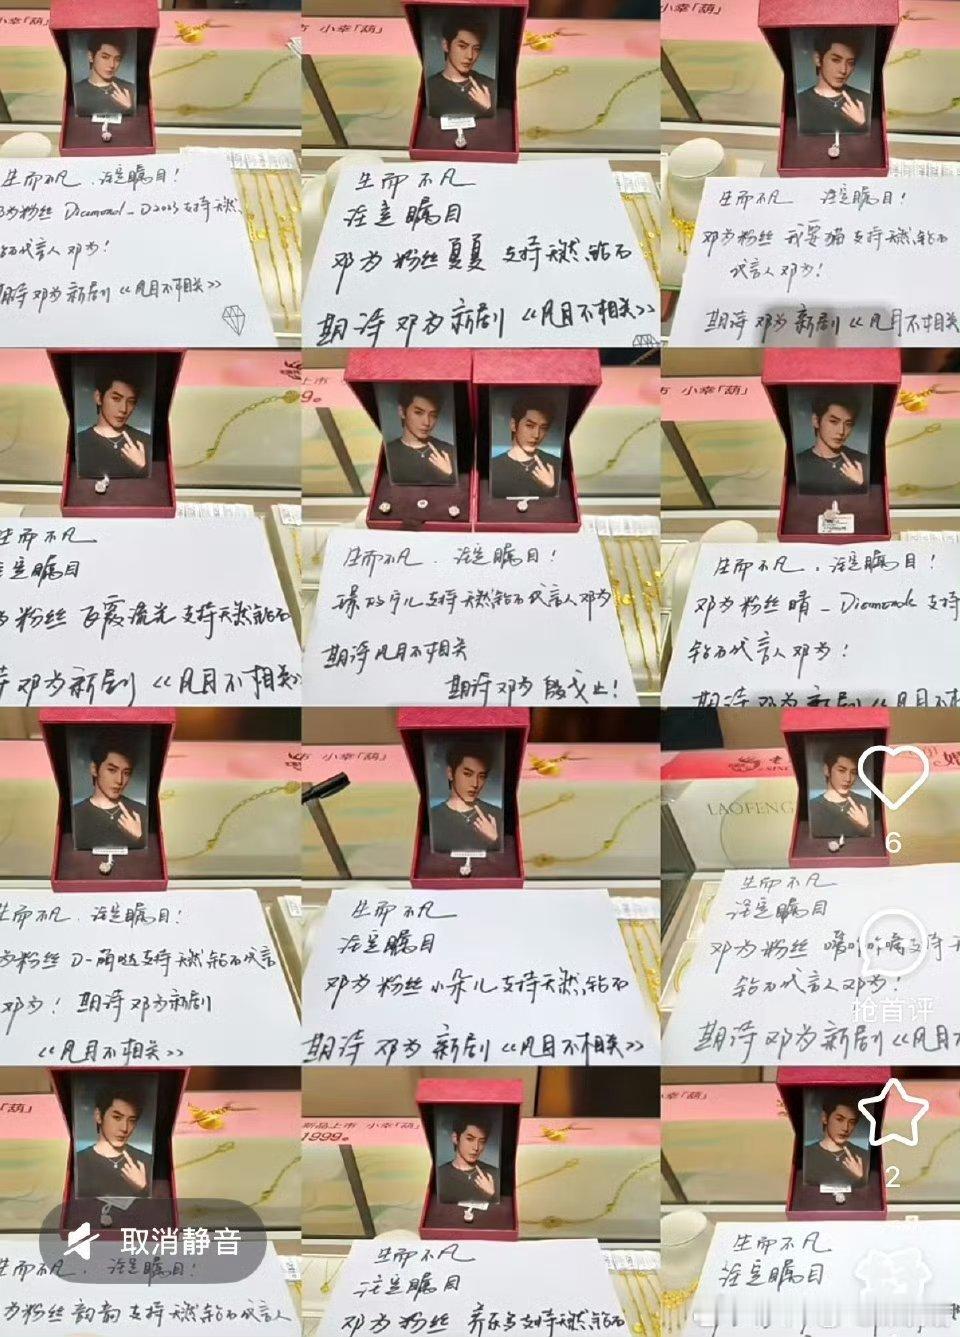 小幸「葫」
小幸「葫」
小幸「葫」
生而不凡，注定瞩目！
邓为粉丝 Diamond_D2003支持天然
钻石代言人 邓为！
期待邓为新剧《风月不相关》
生而不凡
注定瞩目
邓为 粉丝 夏夏 支持天然钻石
期待 邓为 新剧《风月不相关》
生而不凡 注定瞩目！
邓为粉丝 我要猫支持天然钻石
代言人 邓为！
期待 邓为新剧《风月不相关
上市 小幸「葫」
9。
生而不凡
注定瞩目
为粉丝 百霞流光 支持天然钻石
待邓为新剧《风月不相关》
生而不凡，注定瞩目！
支持天然钻石代言人邓为
期待风月不相关
期待邓为 殷戈止！
生而不凡，注定瞩目！
邓为粉丝 晴_Diamond 支持
钻石代言人 邓为！
期待 邓为新剧《风月不相
市 小幸「葫」
LAOFENG
生而不凡，注定瞩目！
为粉丝 D-萌哒支持天然钻石代言
邓为！期待邓为新剧
《风月不相关》
生而不凡
注定瞩目
邓为粉丝 小朵儿 支持天然钻石
期待 邓为 新剧《风月不相关》
生而不凡
注定瞩目
邓为粉丝 支持天
钻石代言人邓为！
期待邓为新剧《风月不
6
抢首评
2
新品上市 小幸「葫」
1999。
取消静音
生而不凡，注定瞩目！
为粉丝 韵韵 支持天然钻石代言人
生而不凡
注定瞩目
邓为粉丝 支持天然钻石
生而不凡
注定瞩目